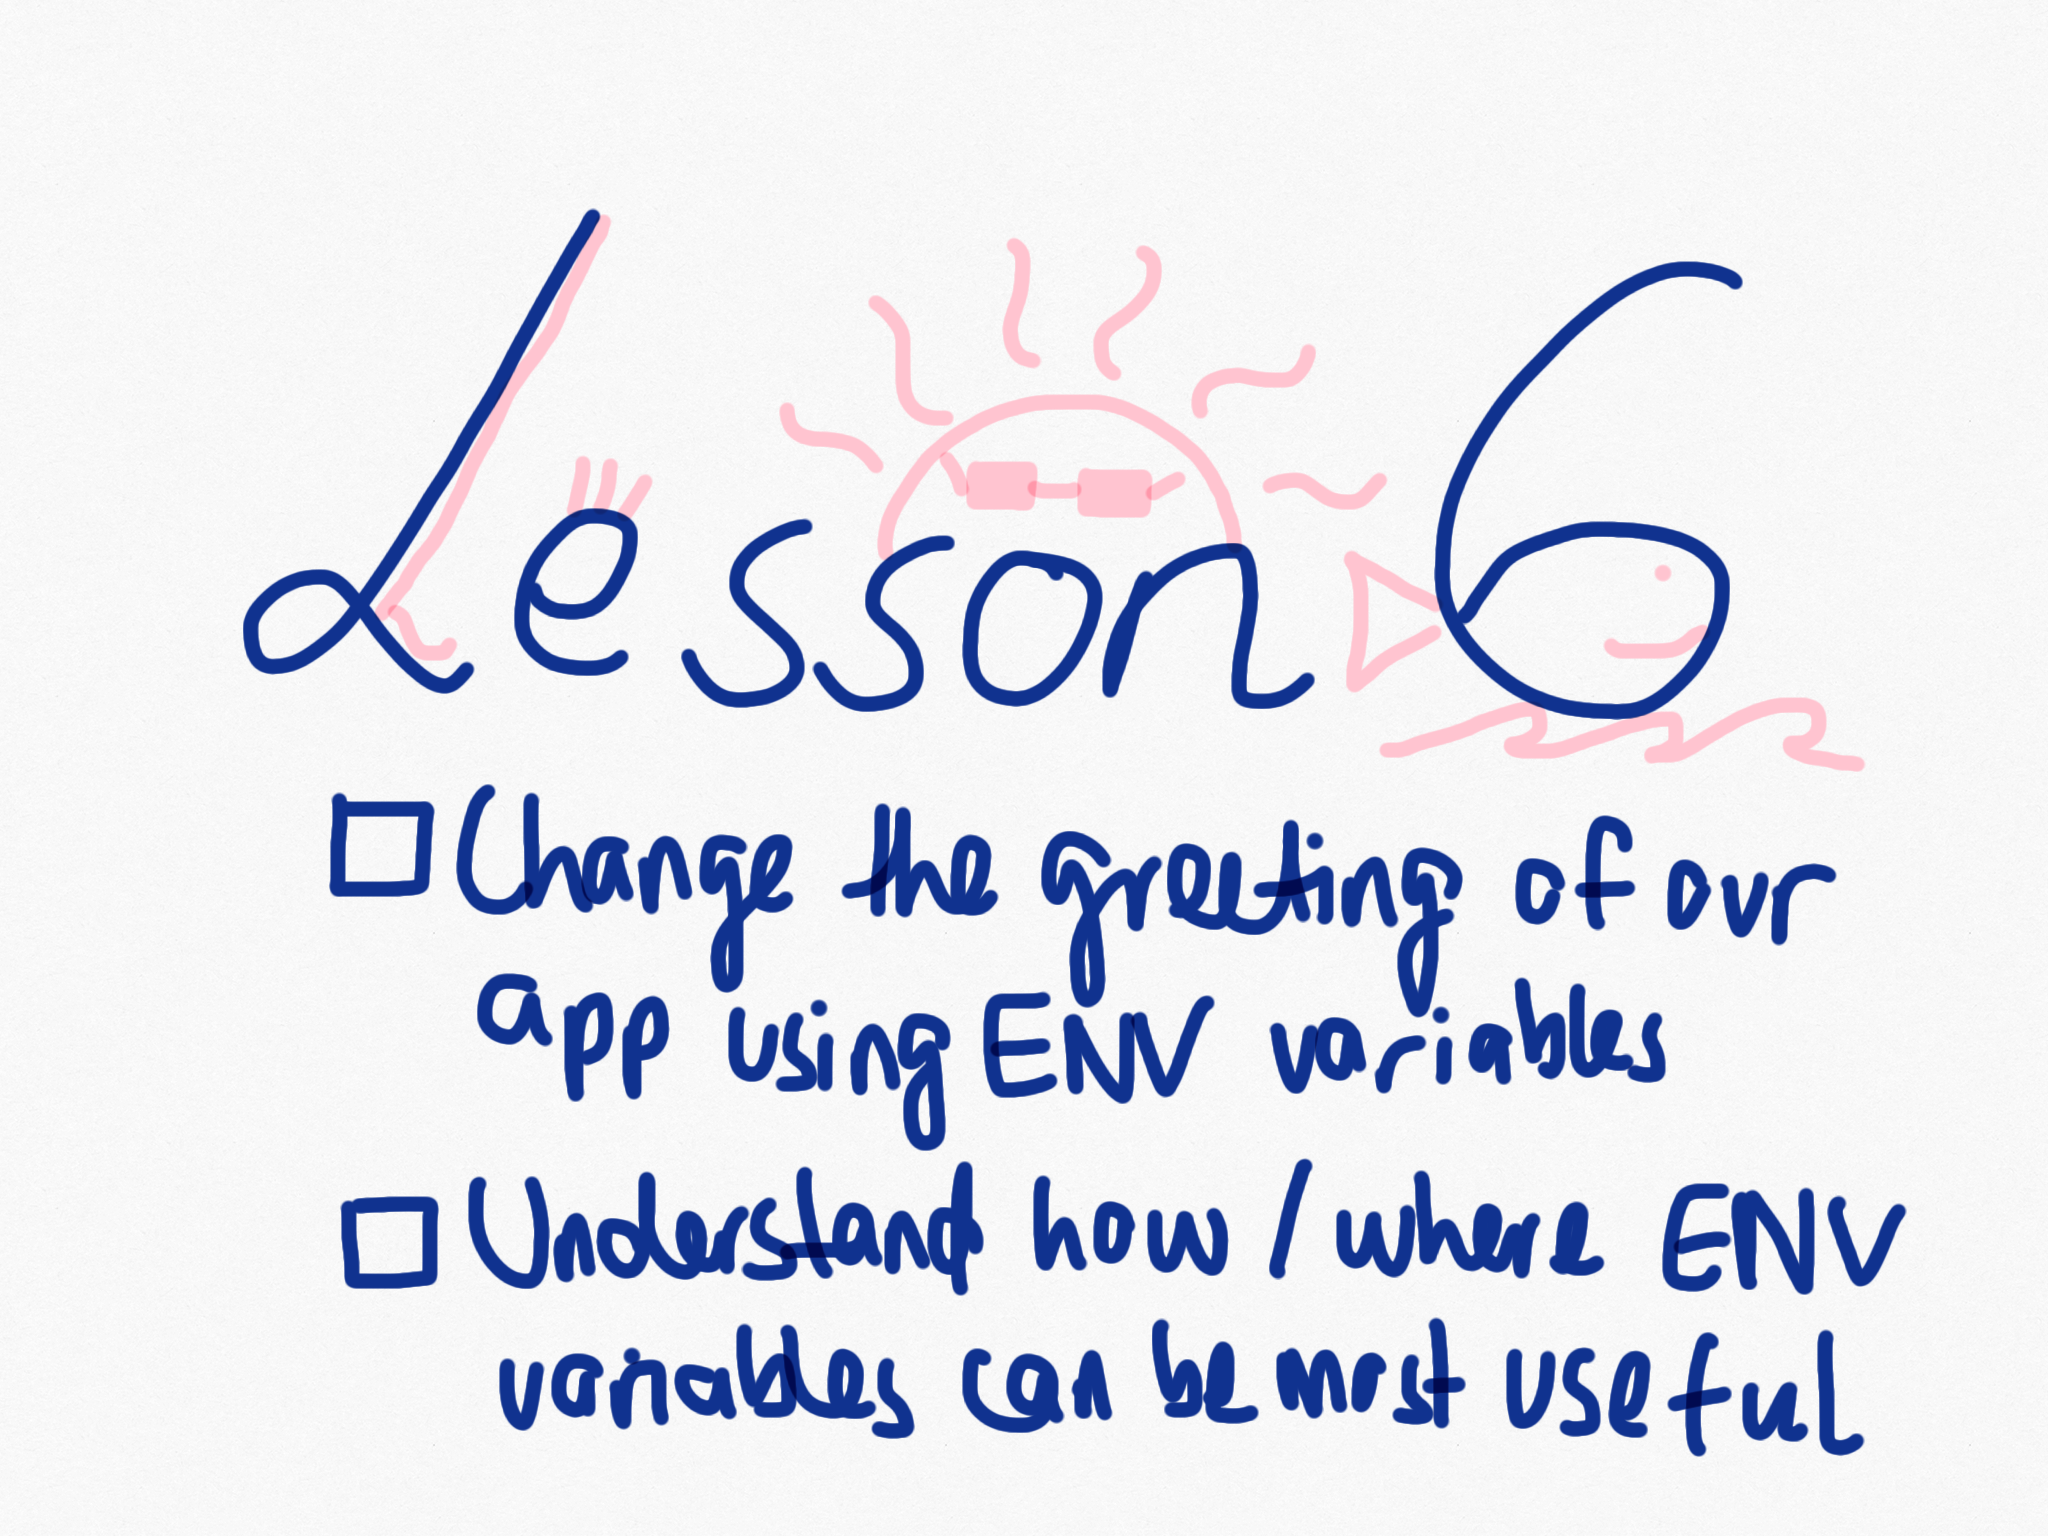 Lesson 6
Change the greeting of our
app using ENV variables
Understand how / where ENV
variables can be most useful